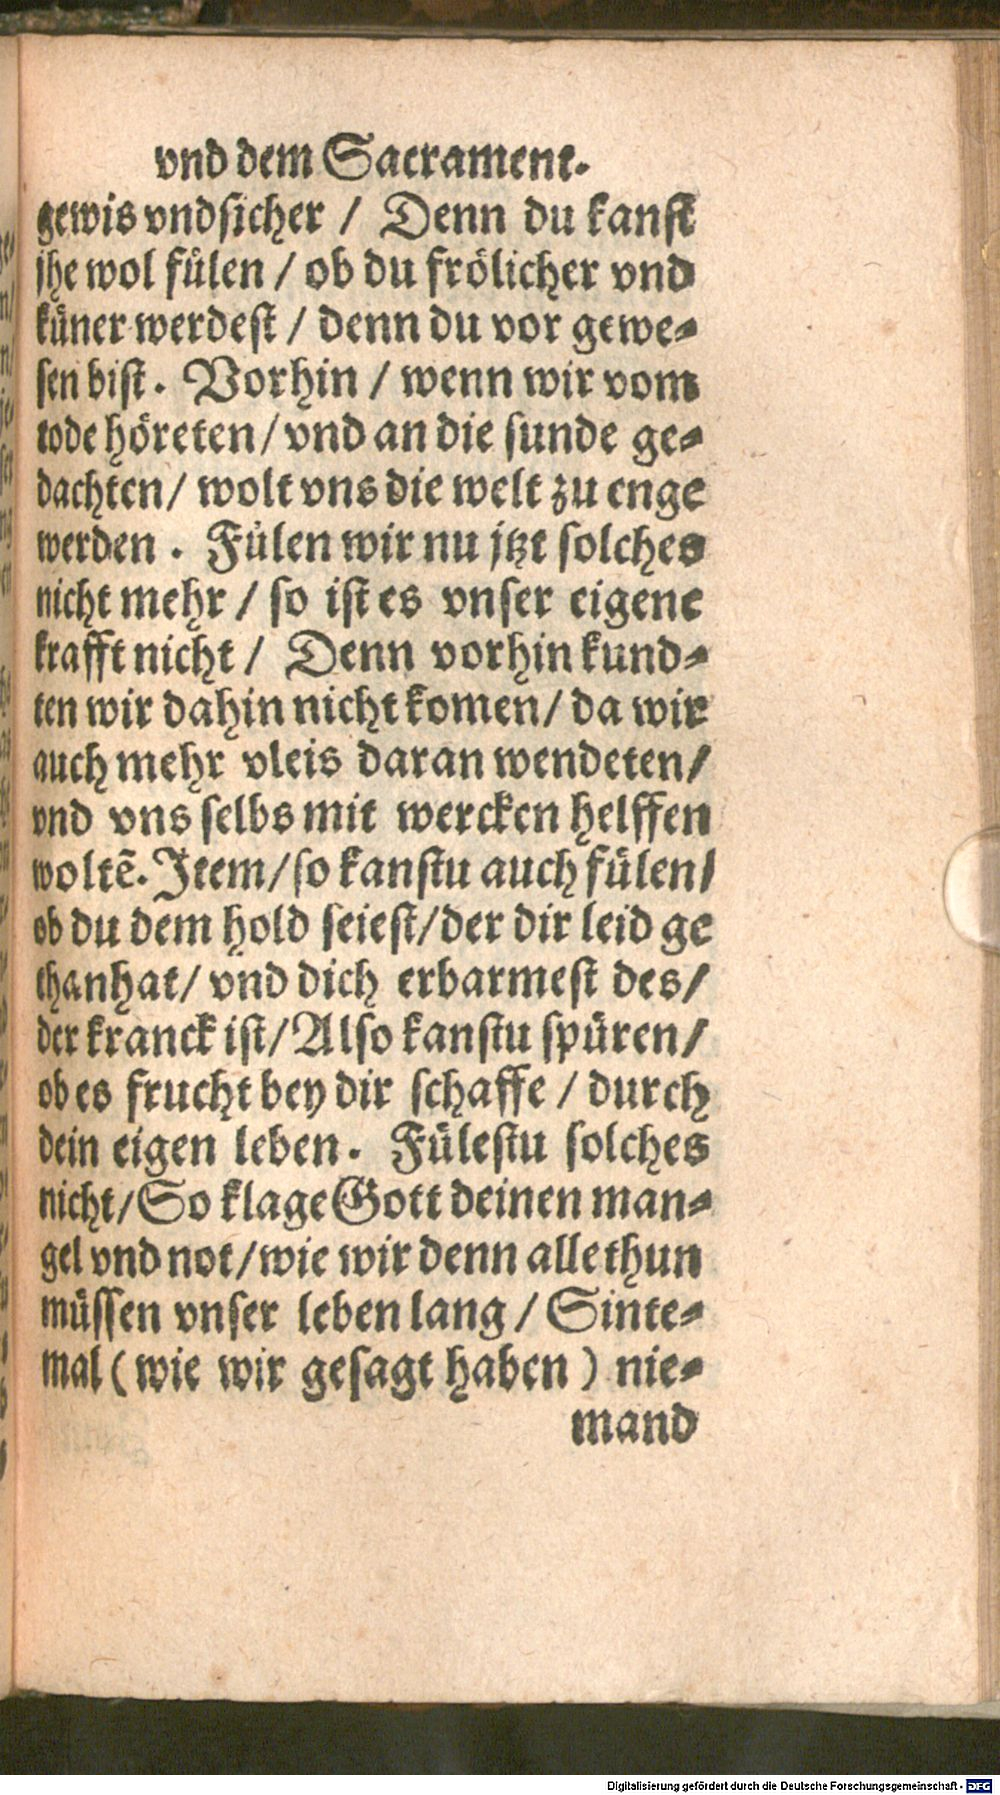 vnd dem Sacrament.
gewis vnd sicher / Denn du kanst
jhe wol fülen / ob du frölicher vnd
küner werdest / denn du vor gewe-
sen bist. Vorhin / wenn wir vom
tode höreten / vnd an die sunde ge-
dachten / wolt vns die welt zu enge
werden. Fülen wir nu jtzt solches
nicht mehr / so ist es vnser eigene
krafft nicht / Denn vorhin kund-
ten wir dahin nicht komen / da wir
auch mehr vleis daran wendeten /
vnd vns selbs mit wercken helffen
woltẽ. Item / so kanstu auch fülen /
ob du dem hold seiest / der dir leid ge
than hat / vnd dich erbarmest des /
der kranck ist / Also kanstu spüren /
ob es frucht bey dir schaffe / durch
dein eigen leben. Fülestu solches
nicht / So klage Gott deinen man-
gel vnd not / wie wir denn alle thun
müssen vnser leben lang / Sinte-
mal (wie wir gesagt haben) nie-
mand
Digitalisierung gefördert durch die Deutsche Forschungsgemeinschaft - DFG